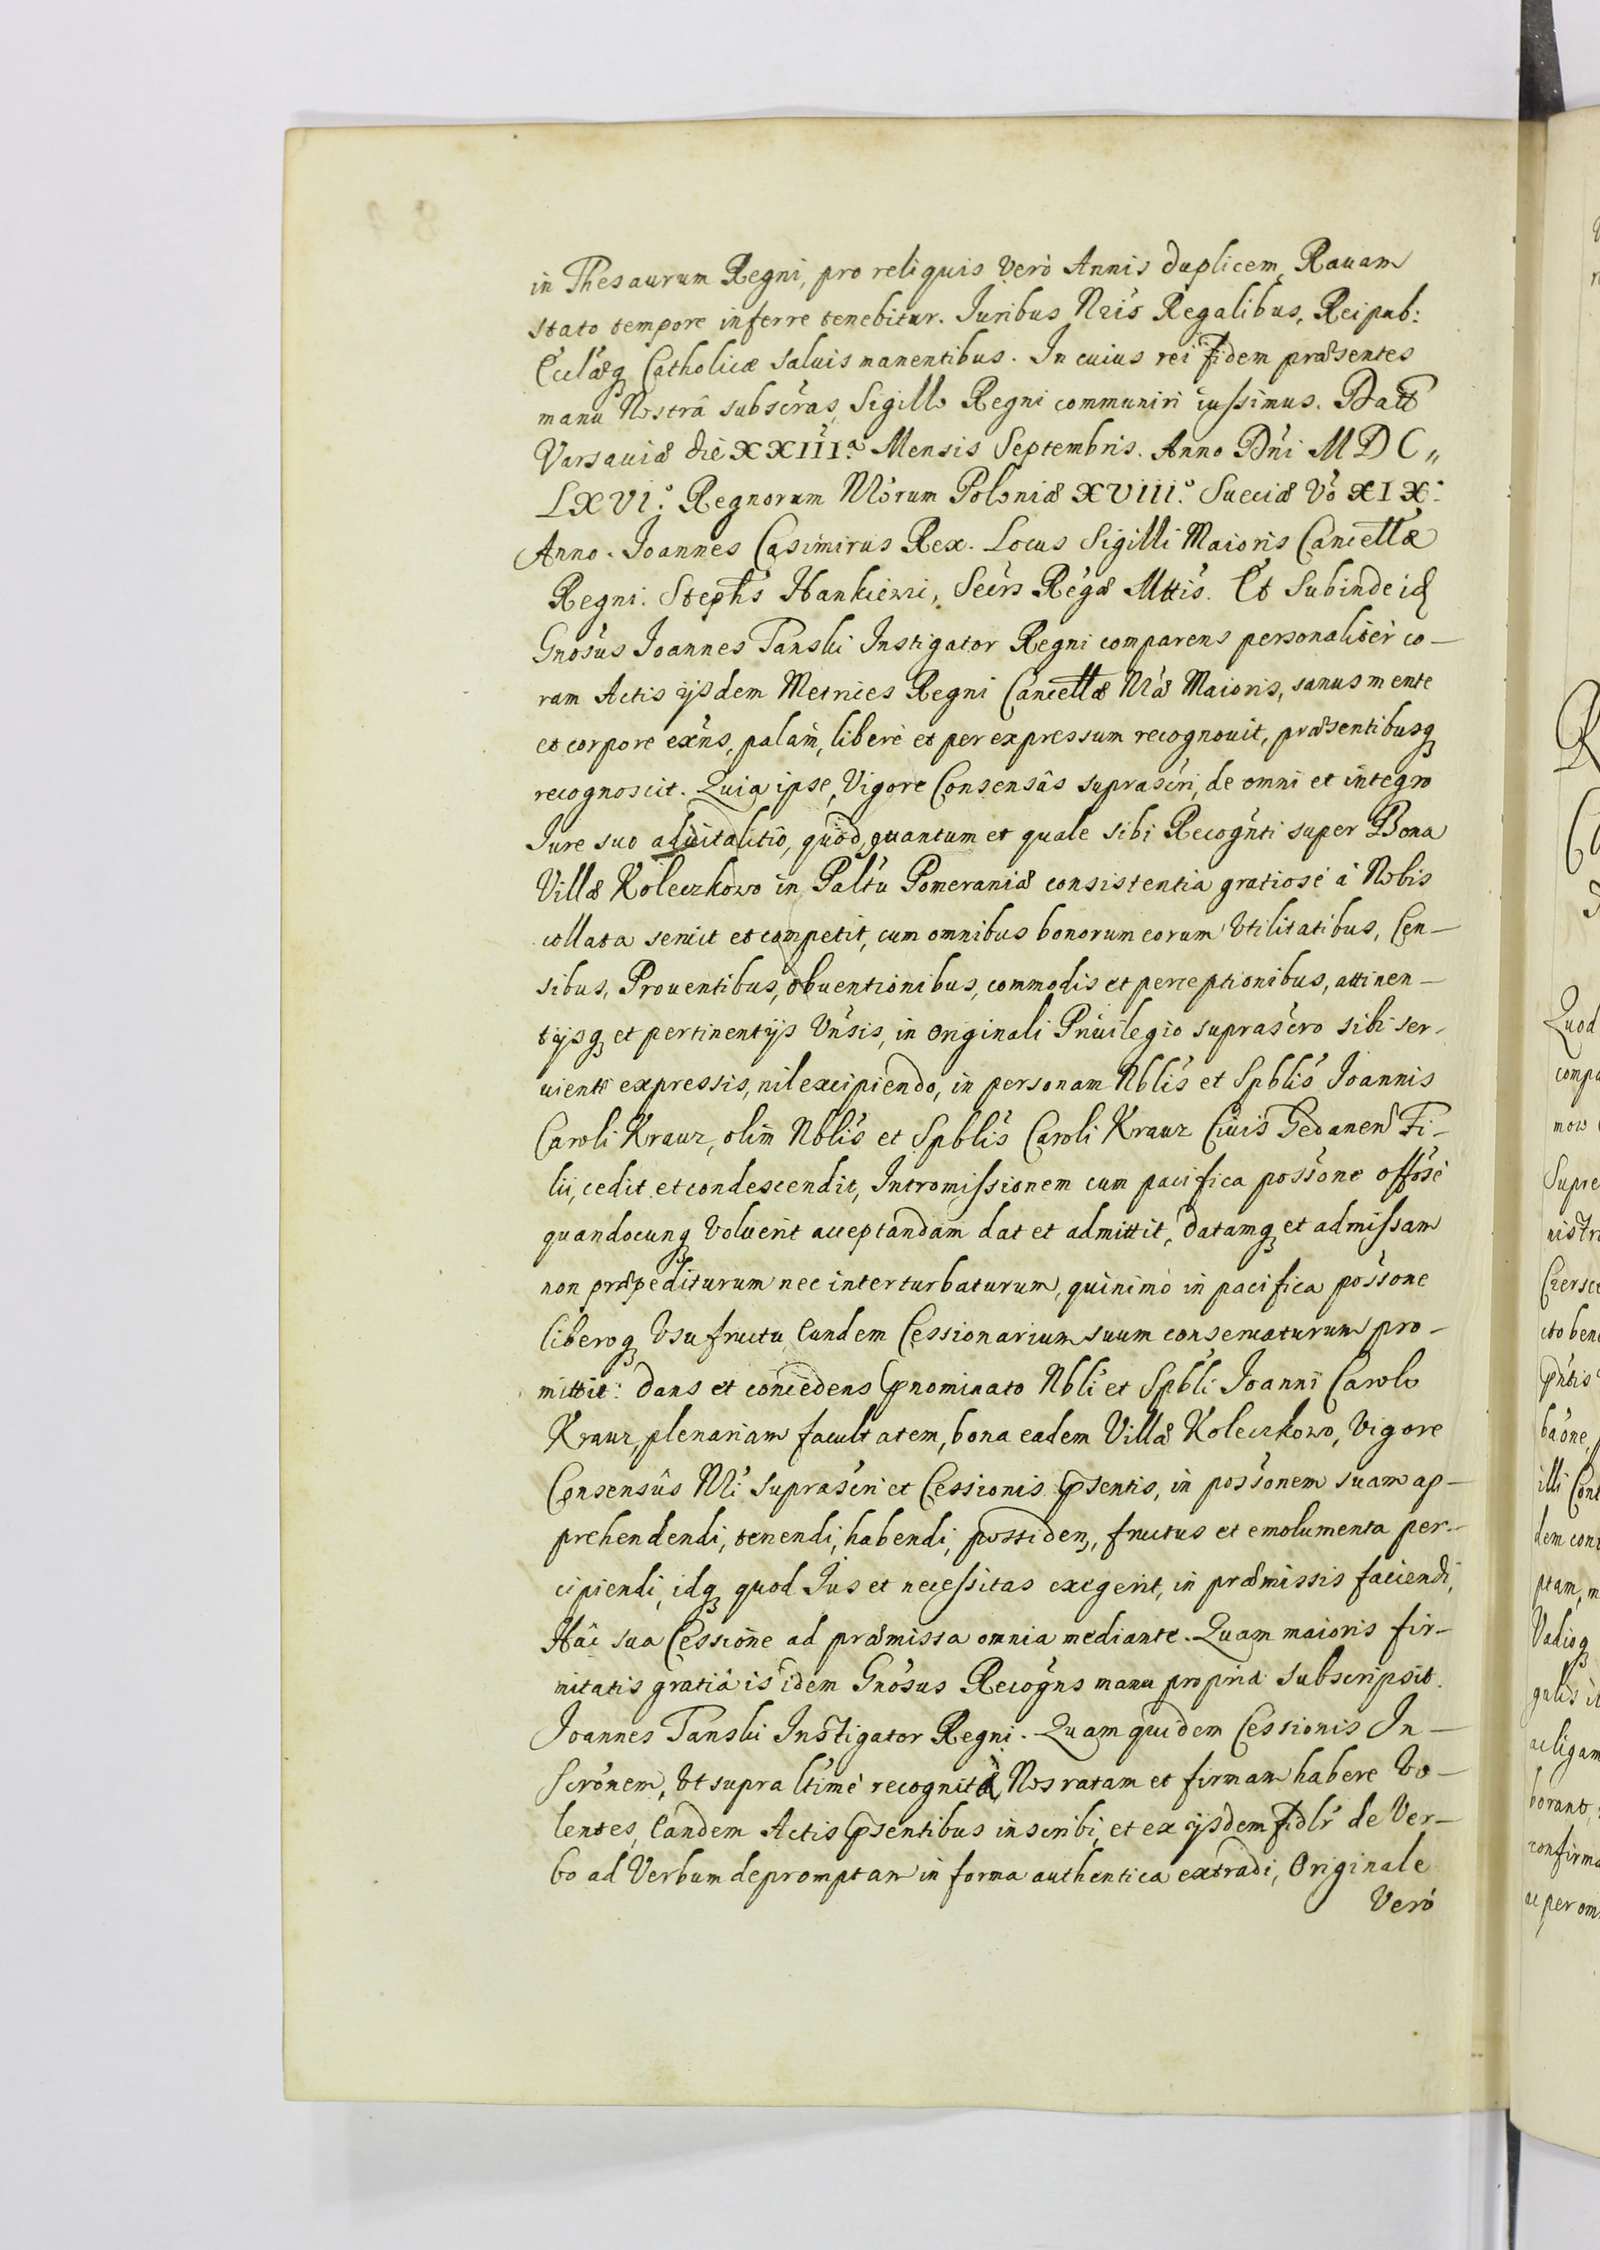 in Thesaurum Regni, pro reliquis verò Annis duplicem, Rauam
stato tempore inferre tenebitur. Juribus Nris Regalibus, Reipub:
Ecclaeq Catholicæ saluis manentibus. In cuius rei fidem præsentes
manu Nostrâ subscras, Sigillo Regni communiri iussimus. Datt
Varsauiæ die XXIIIa Mensis Septembris. Anno Dni MDC„
LXVI.o Regnorum Nrorum Poloniæ XVIII.o Sueciæ Vo XIX.
Anno. Joannes Casimirus Rex. Locus Sigilli Maioris Cancellæ
Regni. Stephs Hankiewi, Secrs Regæ Mttis. Et subinde id
Gnosus Joannes Tanski Instigator Regni comparens personaliter co-
ram Actis ijsdem Metrices Regni Cancellæ Nræ Maioris, sanus mente
et corpore exns, palam, liberè et per expressum recognouit, præsentibusq
recognoscit. Quia ipse, Vigore Consensûs suprascri, de omni et integro
Jure suo aduitalitio, quod, quantum et quale sibi Recognti super Bona
Villæ Koleczkowo in Paltu Pomeraniæ consistentia gratiosè à Nobis
collata seruit et competit, cum omnibus bonorum eorum Vtilitatibus, Cen-
sibus, Prouentibus, obuentionibus, commodis et perceptionibus, attinen-
tijsq et pertinentijs Vnsis, in originali Priuilegio suprascro sibi ser-
uiente expressis, nil excipiendo, in personam Nblis et Spblis Joannis
Caroli Krauz, olim Nblis et Spblis Caroli Krauz Ciuis Gedanen Fi-
lii, cedit et condescendit, Intromissionem cum pacifica possone offosè
quandocunq Voluerit acceptandam dat et admittit, datamq et admissam
non præpediturum nec interturbaturum, quinimò in pacifica possone
liberoq Vsufructu, Eundem Cessionarium suum conseruaturum pro-
mittit: dans et concedens pnominato Nbli et Spbli Joanni Carolo
Krauz, plenariam facultatem, bona eadem Villæ Koleczkowo, Vigore
Consensûs Nri suprascri et Cessionis psentis, in possonem suam ap-
prehendendi, tenendi, habendi, possiden, fructus et emolumenta per-
cipiendi, idq quod Jus et necessitas exegerit, in præmissis faciendi,
Hâc sua Cessione ad præmissa omnia mediante. Quam maioris fir-
mitatis gratiâ is idem Gnosus Recogns manu propriâ subscripsit.
Joannes Tanski Instigator Regni. Quam quidem Cessionis In-
scronem, Vt supra ltimè recognitã Nos ratam et firmam habere Vo-
lentes, Eandem Actis psentibus inscribi, et ex ijsdem fidlr de Ver-
bo ad Verbum depromptam in forma authentica extradi, Originale
Verò